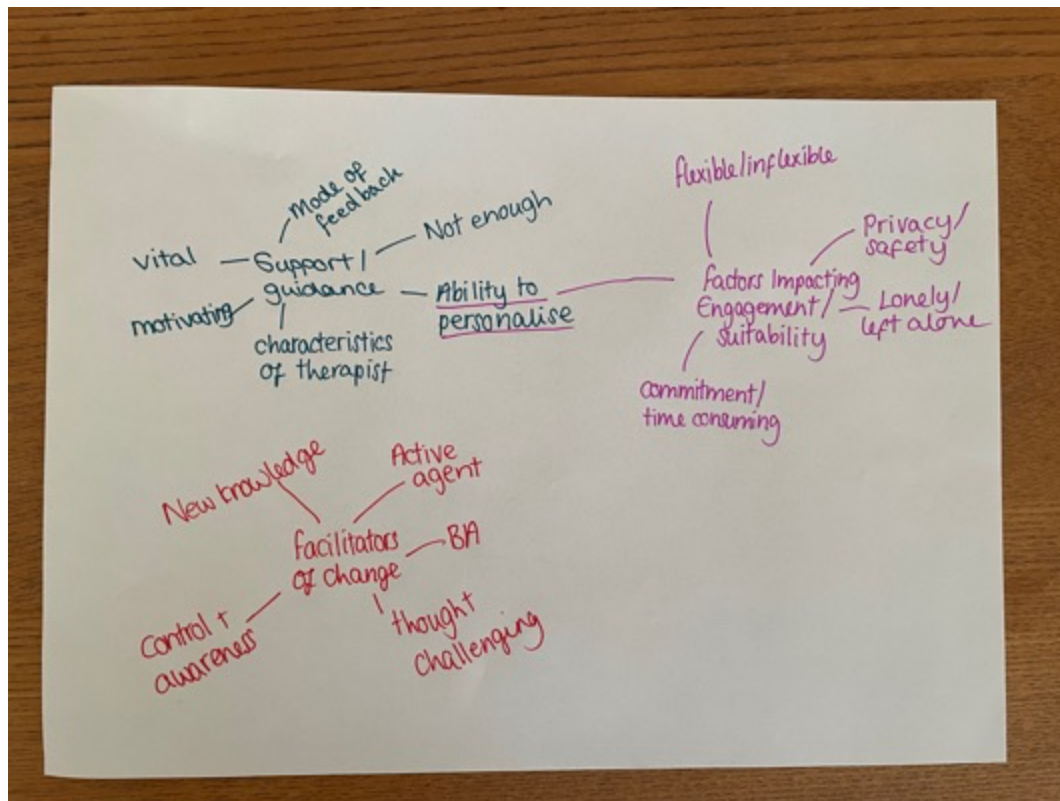 Mode of
feedback
Not enough
vital
Support/
guidance
Ability to
personalise
motivating
characteristics
of therapist
flexible/inflexible
Privacy/
safety
factors Impacting
Engagement/
Suitability
Lonely/
left alone
commitment/
time consuming
New knowledge
Active
agent
facilitators
of change
BA
Control +
awareness
thought
challenging